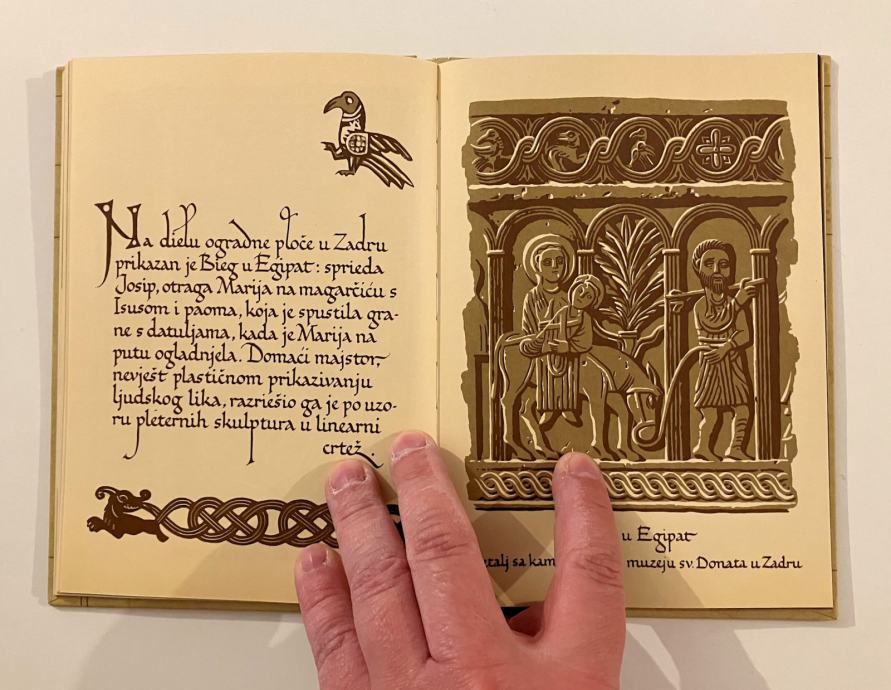 Na dielu ogradne ploče u Zadru
prikazan je Bieg u Egipat: sprieda
Josip, otraga Marija na magarčiću s
Isusom i paoma, koja je spustila gra-
ne s datuljama, kada je Marija na
putu ogladnjela. Domaći majstor,
nevješt plastičnom prikazivanju
ljudskog lika, razriešio ga je po uzo-
ru pleternih skulptura u linearni
crtež.
u Egipat
sa muzeju sv. Donata u Zadru